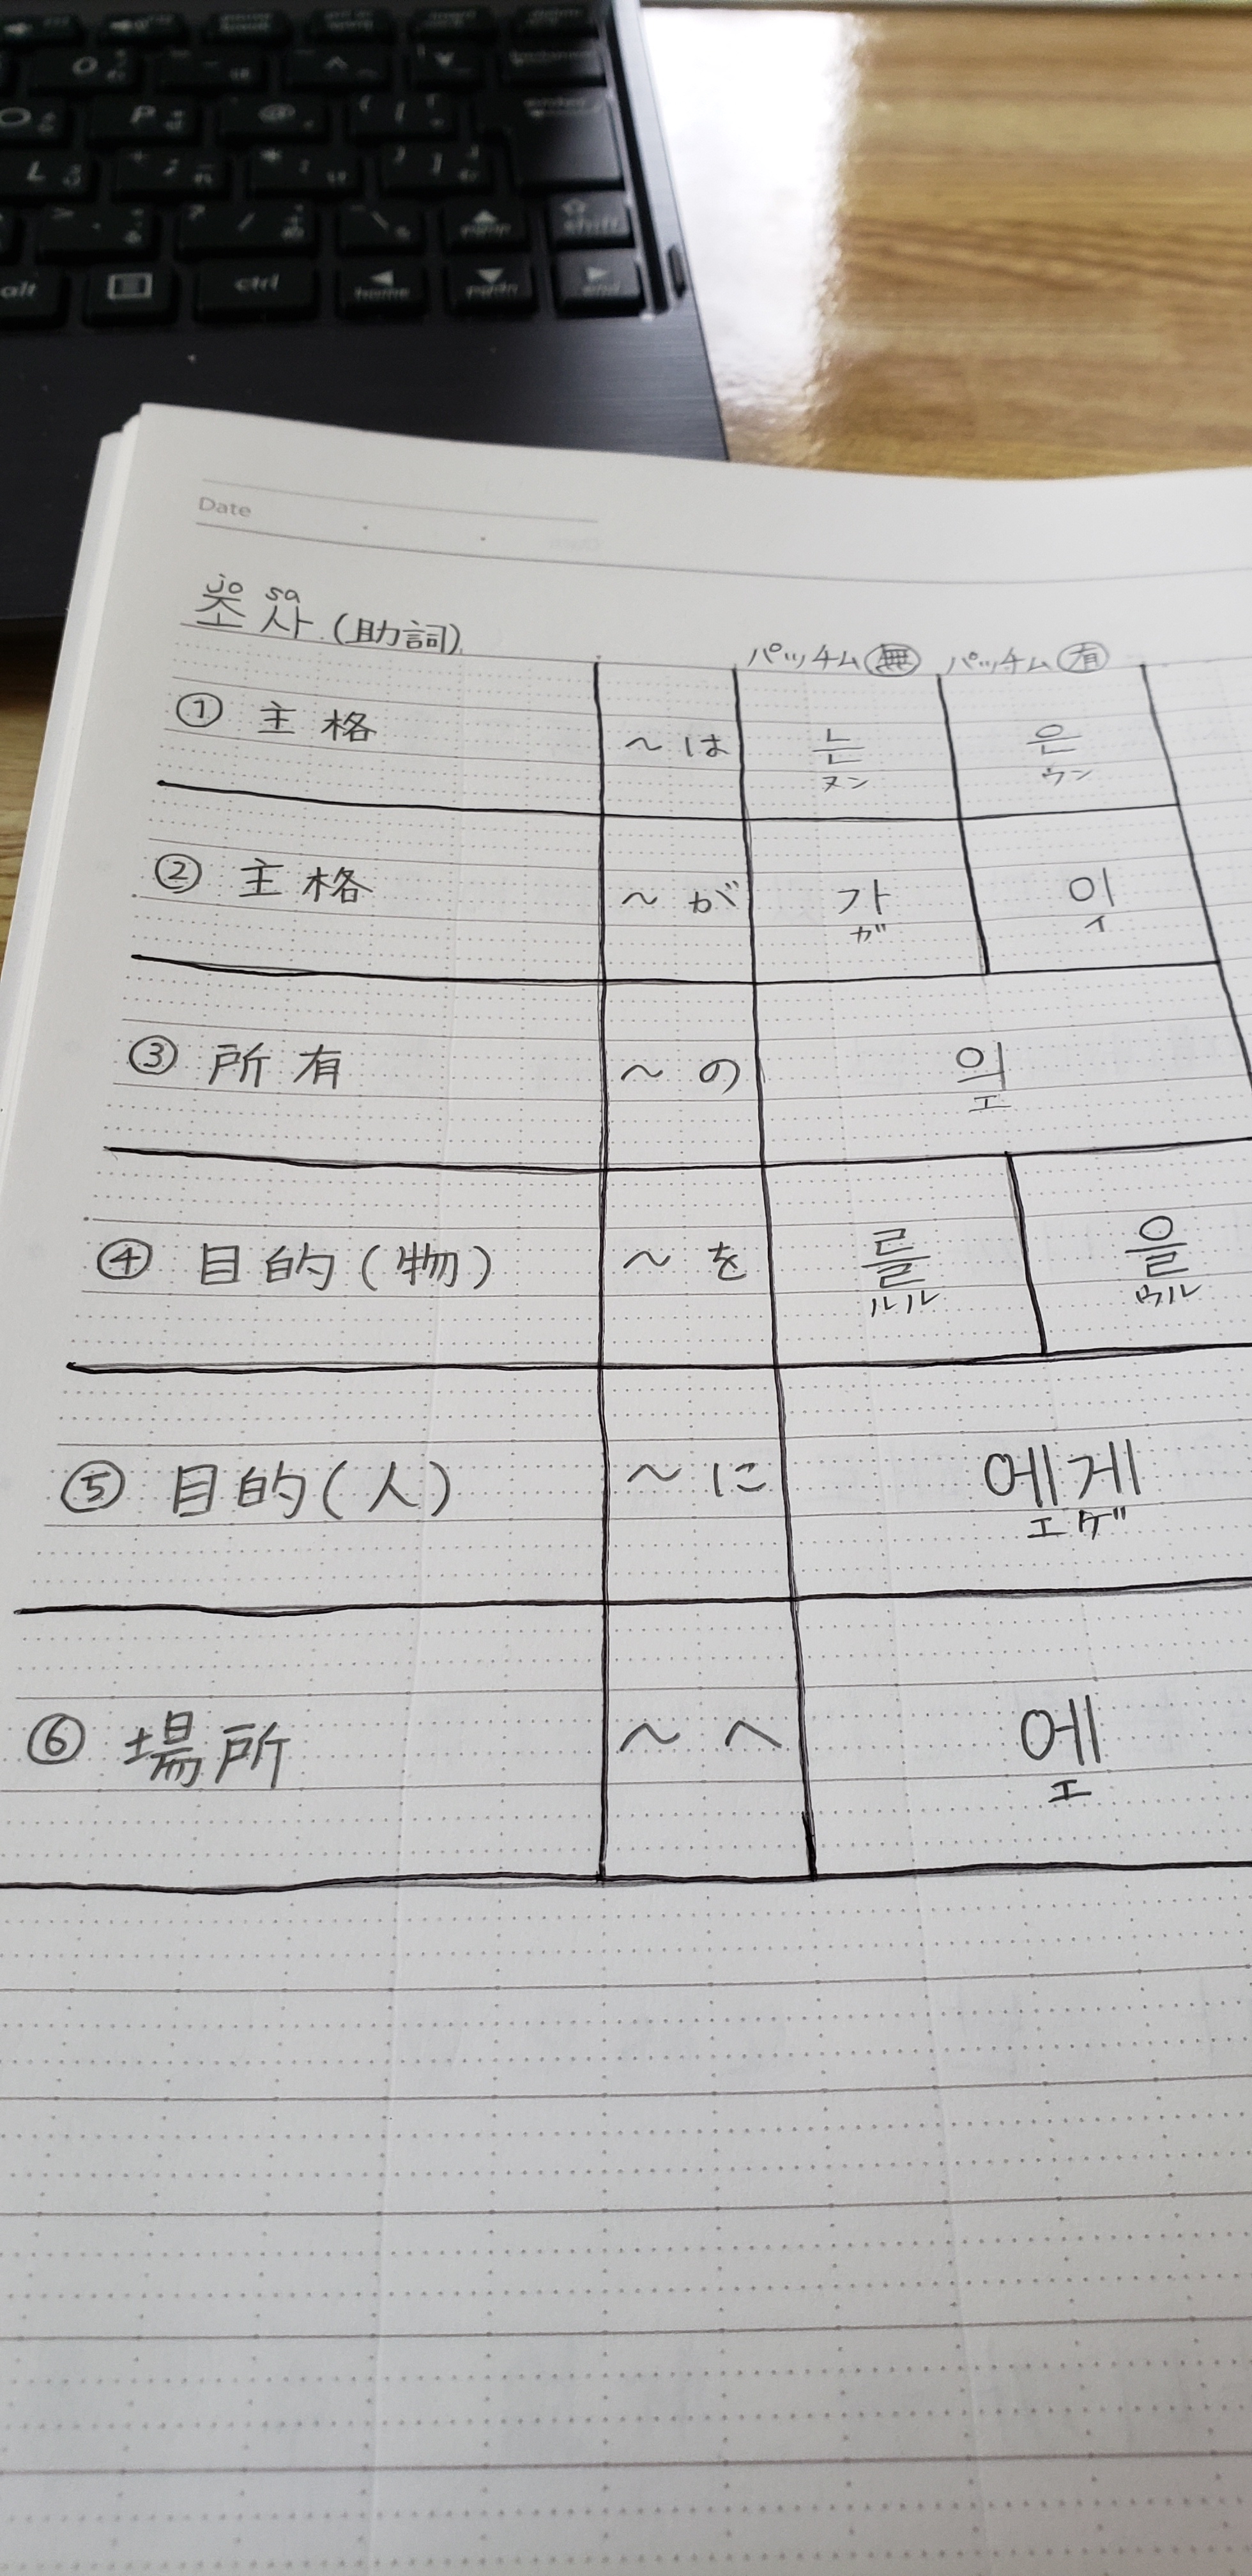 O
P
@
L
alt
ctrl
home
pgdn
end
shift
Date
jo sa
조사 (助詞)
パッチム㊒無 パッチム㊒
① 主格 ～は 는 은
ヌン ウン
② 主格 ～が 가 이
ガ イ
③ 所有 ～の 의
エ
④ 目的(物) ～を 를 을
ルル ウル
⑤ 目的(人) ～に 에게
エゲ
⑥ 場所 ～へ 에
エ